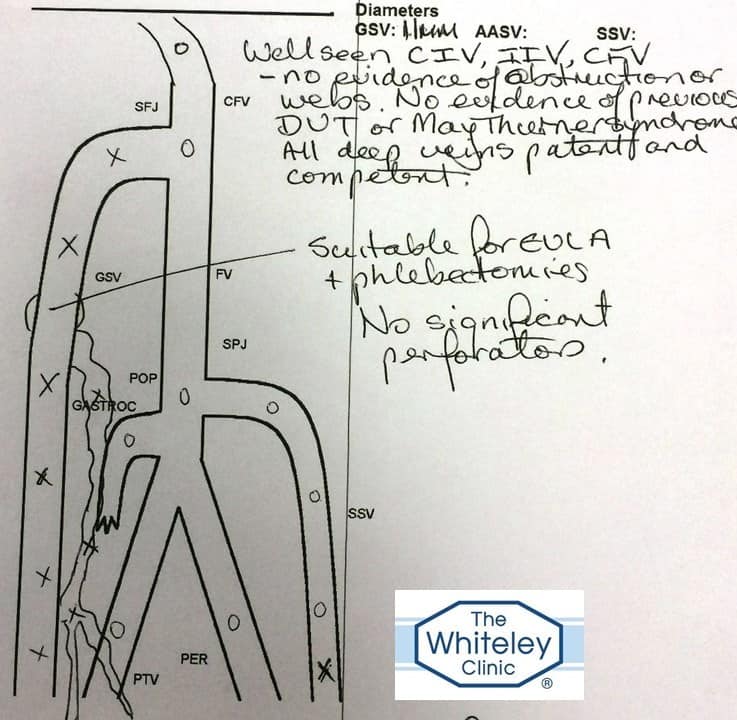 Diameters
GSV: 11mm AASV: SSV:
Well seen CIV, IIV, CFV
- no evidence of obstruction or
webs. No evidence of previous
DVT or May Thurner syndrome
All deep veins patent and
competent.
SFJ
CFV
Suitable for EVLA
+ phlebectomies
GSV
FV
No significant
perforators.
SPJ
POP
GASTROC
SSV
PER
PTV
The
Whiteley
Clinic
®